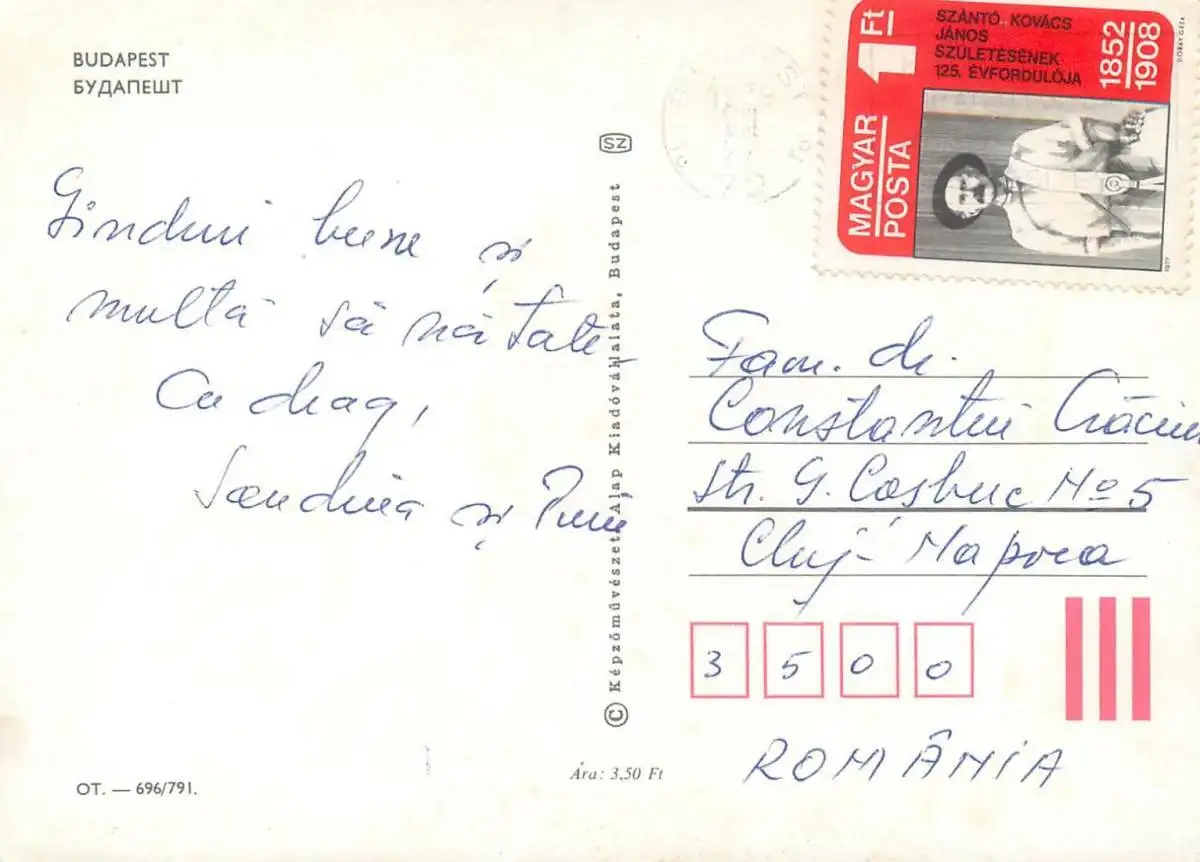 BUDAPEST
БУДАПЕШТ
Gînduri bune și
multă sănătate
Cu drag,
Sandina și
SZ
© Képzőművészeti Alap Kiadóvállalata, Budapest
OT. — 696/791.
Ára: 3,50 Ft
MAGYAR
POSTA
1 Ft
SZÁNTÓ KOVÁCS
JÁNOS
SZÜLETÉSÉNEK
125. ÉVFORDULÓJA
1852
1908
DOBAY GÉZA
1977
Fam. dr.
Constantin Crăciun
str. G. Coșbuc No 5
Cluj-Napoca
3 5 0 0
ROMÂNIA